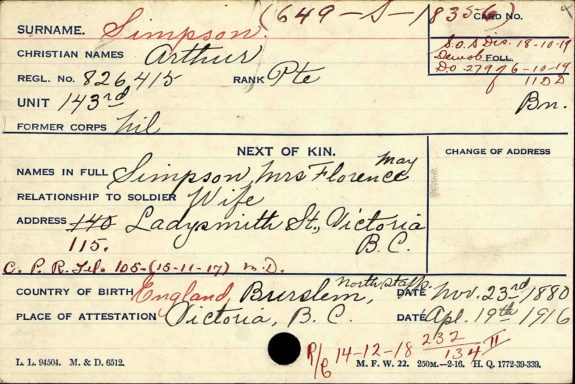 (649-S-1835-6)
SURNAME. Simpson. CARD NO.
CHRISTIAN NAMES Arthur S.O.S Dis. 18-10-19
REGL. NO. 826415 RANK Pte Demob FOLL.
D.O. 279 of 6-10-19
of 11 DD
UNIT 143rd Bn.
FORMER CORPS Nil
NEXT OF KIN. CHANGE OF ADDRESS
NAMES IN FULL Simpson, Mrs Florence May
RELATIONSHIP TO SOLDIER Wife
ADDRESS 140 Ladysmith St., Victoria
115. B.C.
C. P. R. Lib. 105-(15-11-17) M.D.
COUNTRY OF BIRTH England, Burslem, North Staffs. DATE Nov. 23rd 1880
PLACE OF ATTESTATION Victoria, B.C. DATE Apl. 19th 1916
R/C 14-12-18 232 / 134 II
L. L. 94504. M. & D. 6512. M. F. W. 22. 250M.-2-16. H. Q. 1772-39-339.